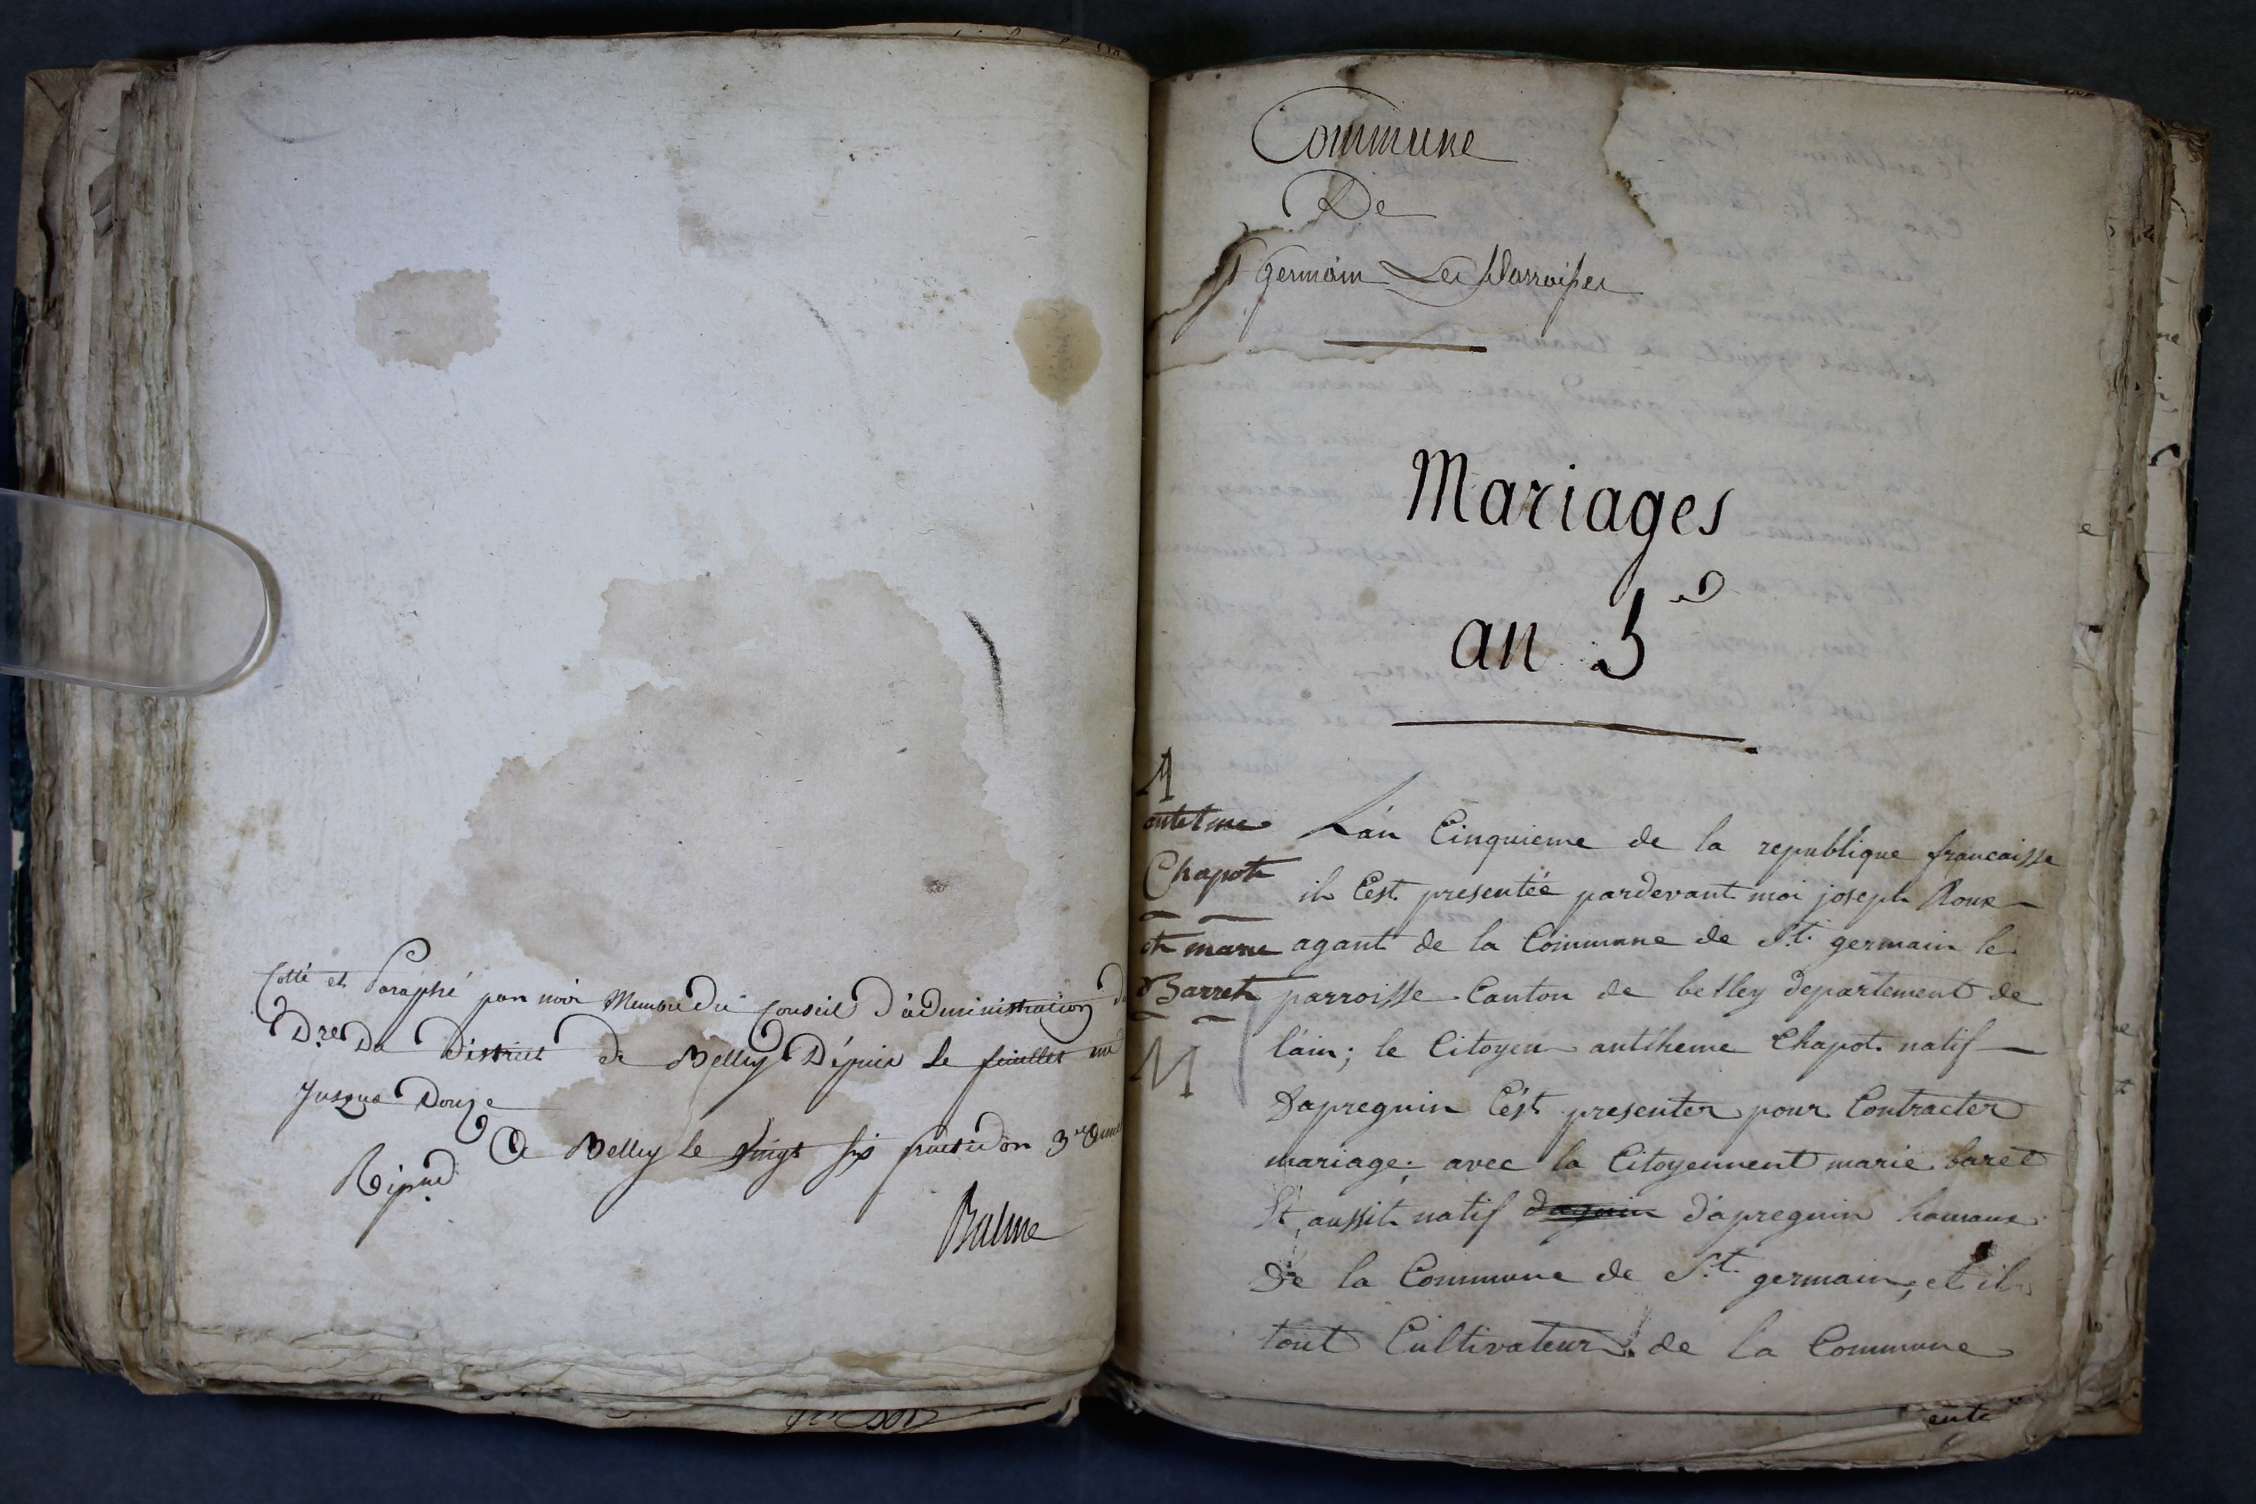 Cotté et Paraphé par moi Membre du Conseil d'administration
Dre Du District de Belley Dépuis le feuillet un
Jusqua Douze
A Belley le Vingt six fructidor 3e
Balme
Commune
De
St germain Les Parroisses
Mariages
an 5
A
antelme
Chapot
et marie
Barret
M
L'an Cinquieme de la republique francaisse
il C'est presentée pardevant moi joseph Roux
agant de la Commune de St. germain le
parroisse Canton de belley departement de
l'ain; le Citoyen antheme Chapot natif
Dapreguin C'est presenter pour Contracter
mariage; avec la Citoyennent marie baret
Et aussit natif d'apreguin hamaux
De la Commune de St. germain, et il
tout Cultivateur de la Commune